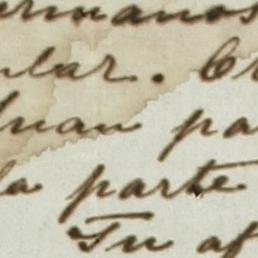 ermanos
ular. Cr
Juan pa
la parte
Tu af